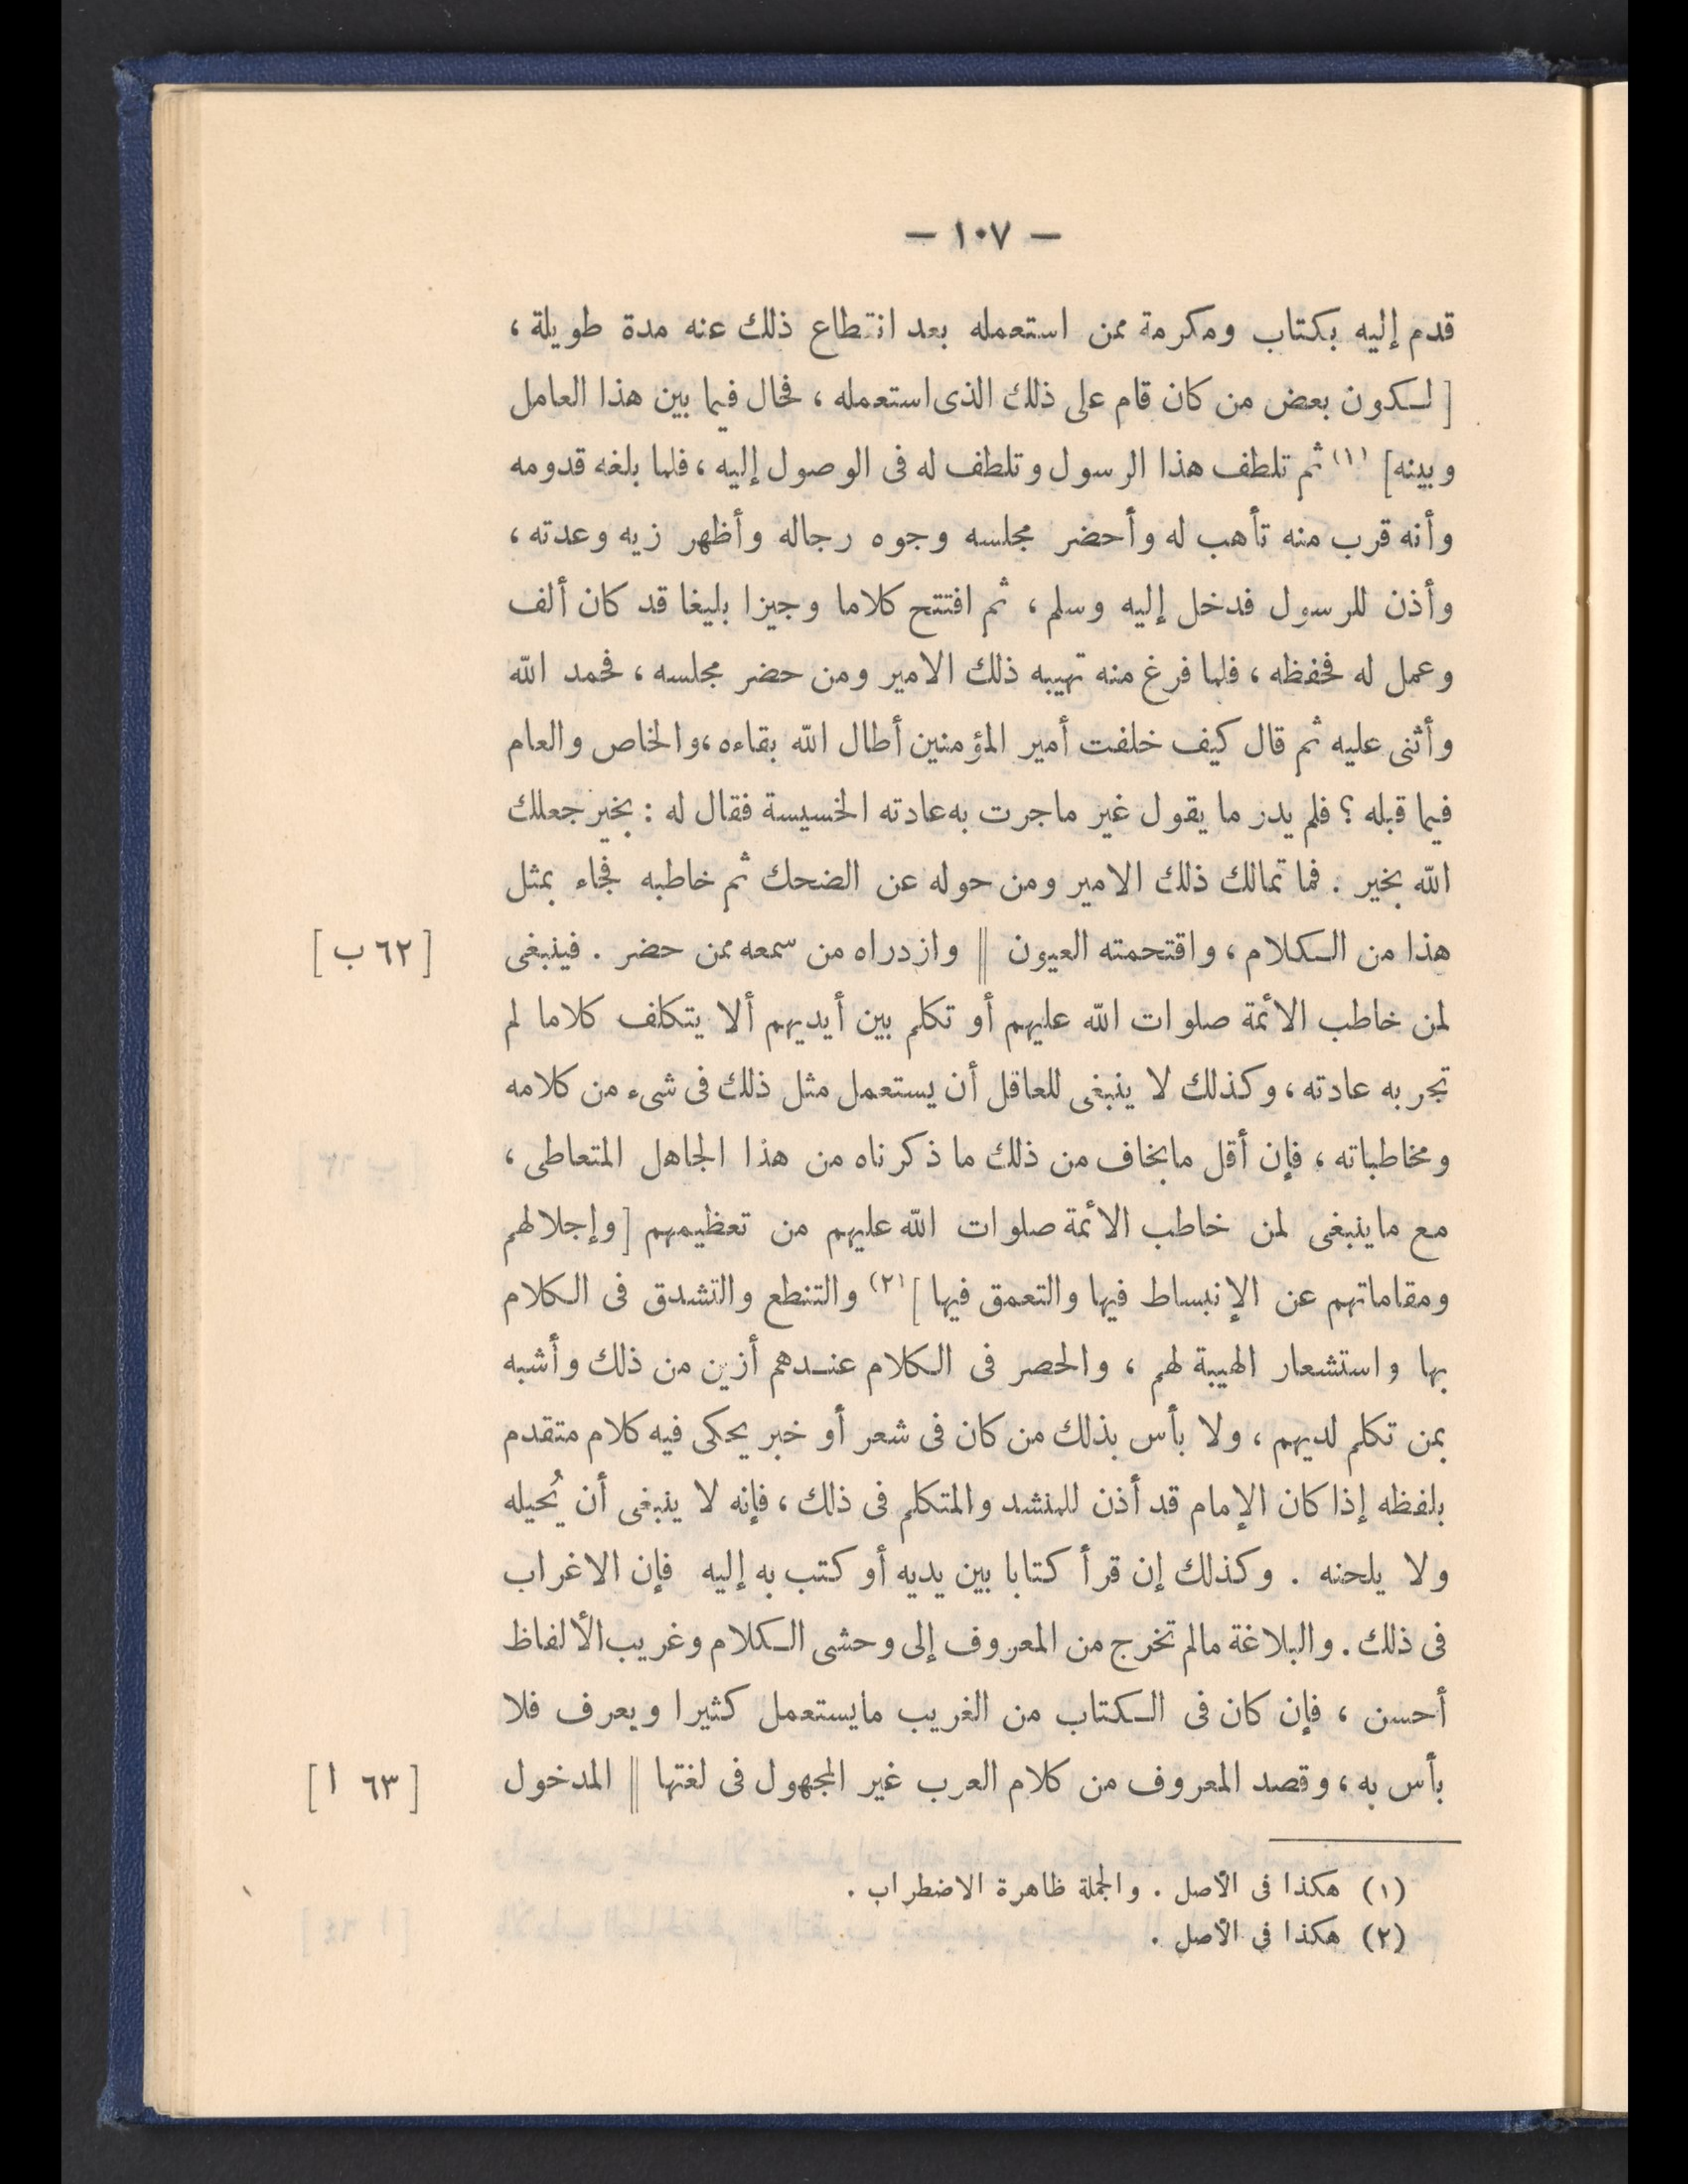 — ١٠٧ —
قدم إليه بكتاب ومكرمة ممن استعمله بعد انقطاع ذلك عنه مدة طويلة ،
[ لكون بعض من كان قام على ذلك الذى استعمله ، فحال فيما بين هذا العامل
وبينه ] (١) ثم تلطف هذا الرسول وتلطف له فى الوصول إليه ، فلما بلغه قدومه
وأنه قرب منه تأهب له وأحضر مجلسه وجوه رجاله وأظهر زيه وعدته ،
وأذن للرسول فدخل إليه وسلم ، ثم افتتح كلاما وجيزا بليغا قد كان ألف
وعمل له فحفظه ، فلما فرغ منه تهيبه ذلك الامير ومن حضر مجلسه ، فحمد الله
وأثنى عليه ثم قال كيف خلفت أمير المؤمنين أطال الله بقاءه ، والخاص والعام
فيما قبله ؟ فلم يدر ما يقول غير ماجرت به عادته الخسيسة فقال له : بخير جعلك
الله بخير . فما تمالك ذلك الامير ومن حوله عن الضحك ثم خاطبه فجاء بمثل
هذا من الكلام ، واقتحمته العيون || وازدراه من سمعه ممن حضر . فينبغى [ ٦٢ ب ]
لمن خاطب الائمة صلوات الله عليهم أو تكلم بين أيديهم ألا يتكلف كلاما لم
تجر به عادته ، وكذلك لا ينبغى للعاقل أن يستعمل مثل ذلك فى شىء من كلامه
ومخاطباته ، فإن أقل مايخاف من ذلك ما ذكرناه من هذا الجاهل المتعاطى ،
مع ماينبغى لمن خاطب الائمة صلوات الله عليهم من تعظيمهم [ وإجلالهم
ومقاماتهم عن الإنبساط فيها والتعمق فيها ] (٢) والتنطع والتشدق فى الكلام
بها واستشعار الهيبة لهم ، والحصر فى الكلام عندهم أزين من ذلك وأشبه
بمن تكلم لديهم ، ولا بأس بذلك من كان فى شعر أو خبر يحكى فيه كلام متقدم
بلفظه إذا كان الإمام قد أذن للمنشد والمتكلم فى ذلك ، فإنه لا ينبغى أن يُحيله
ولا يلحنه . وكذلك إن قرأ كتابا بين يديه أو كتب به إليه فإن الاغراب
فى ذلك . والبلاغة مالم تخرج من المعروف إلى وحشى الكلام وغريب الألفاظ
أحسن ، فإن كان فى الكتاب من الغريب مايستعمل كثيرا ويعرف فلا
بأس به ، وقصد المعروف من كلام العرب غير المجهول فى لغتها || المدخول [ ٦٣ ا ]
(١) هكذا فى الأصل . والجملة ظاهرة الاضطراب .
(٢) هكذا فى الأصل .